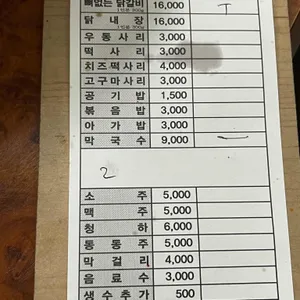 뼈없는 닭갈비 16,000 T
닭 내 장 16,000
우 동 사 리 3,000
떡 사 리 3,000
치즈떡사리 4,000
고구마사리 3,000
공 기 밥 1,500
볶 음 밥 3,000
아 가 밥 3,000
막 국 수 9,000 一
2
소 주 5,000
맥 주 5,000
청 하 6,000
동 동 주 5,000
막 걸 리 4,000
음 료 수 3,000
생 수 추 가 500